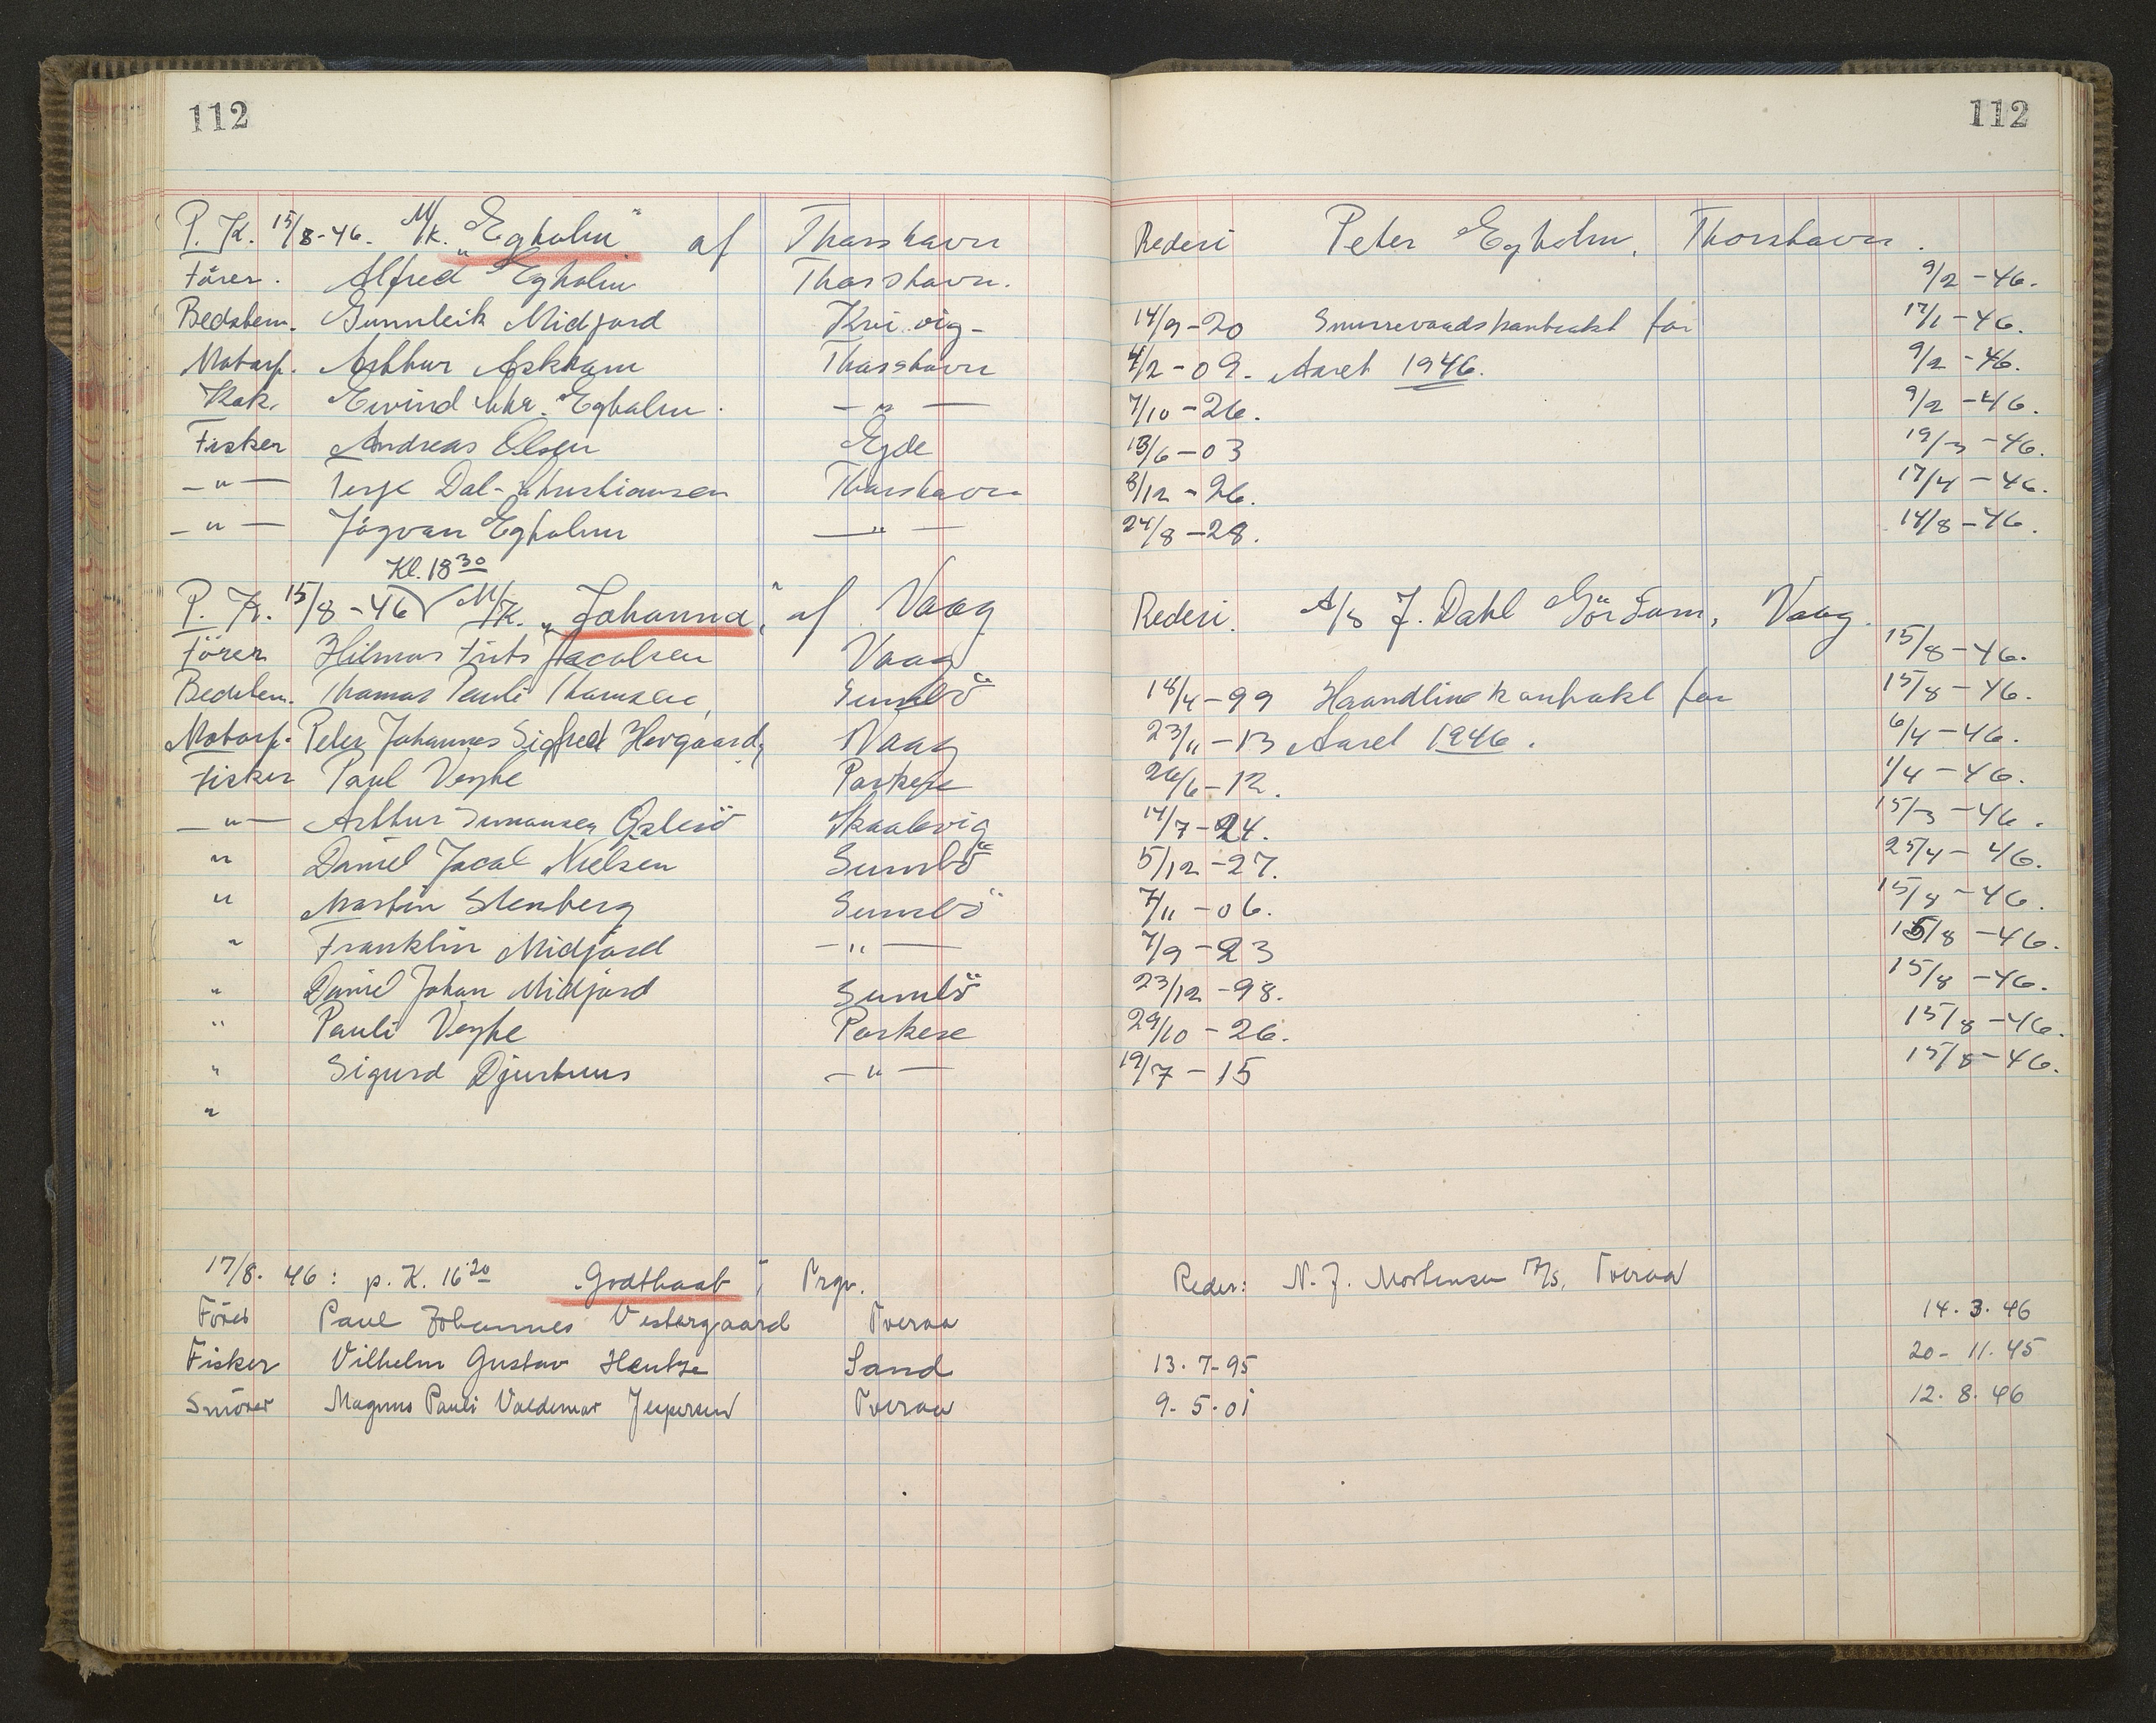 112 112
P. K. 15/8-46. M/k. "Egholm" af Thorshavn Rederi Peter Egholm, Thorshavn.
Förer. Alfred Egholm Thorshavn. 9/2-46.
Bedstem. Gunnleik Midjord Kvivig- 14/9-20 Snurrevaadskontrakt for 17/1-46.
Motorp. Arthur Askham Thorshavn 4/2-09. Aaret 1946. 9/2-46.
Kok. Eivind Chr. Egholm. -"- 7/10-26. 9/2-46.
Fisker Andreas Olsen Ejde 13/6-03 19/3-46.
-"- Terje Dal-Christiansen Thorshavn 8/12-26. 17/4-46.
-"- Jógvan Egholm -"- 24/8-28. 14/8-46.
Kl. 18 30
P. K. 15/8-46 M/K. "Johanna" af Vaag Rederi. A/S J. Dahl Vaag.
Förer Hilmar Frits Jacobsen Vaag 15/8-46.
Bedstem. Thomas Pauli Thomsen, Sumbö 18/4-99 Haandlinekontrakt for 15/8-46.
Motorp. Peter Johannes Sigfred Hovgaard, Vaag 23/11-13 Aaret 1946. 6/4-46.
Fisker Paul Vejhe Porkere 26/6-12. 1/4-46.
-"- Arthur Simonsen 14/7-24. 15/3-46.
" Daniel Jacob Nielsen Sumbö 5/12-27. 25/4-46.
" Martin Stenberg Sumbö 7/11-06. 15/8-46.
" Franklin Midjord -"- 7/9-23 15/8-46.
" Daniel Johan Midjord Sumbö 23/12-98. 15/8-46.
" Pauli Vejhe Porkere 29/10-26. 15/8-46.
" Sigurd Djurhuus -"- 19/7-15 15/8-46.
"
17/8. 46: p. K. 16 20 "Godthaab", Trgv. Reder: N. J. Mortensen A/S, Tveraa
Förer Paul Johannes Vestergaard Tveraa 14. 3. 46
Fisker Vilhelm Gustav Hentze Sand 13. 7-95 20-11.45
Smörer Magnus Pauli Valdemar Jespersen Tveraa 9. 5. 01 12. 8. 46